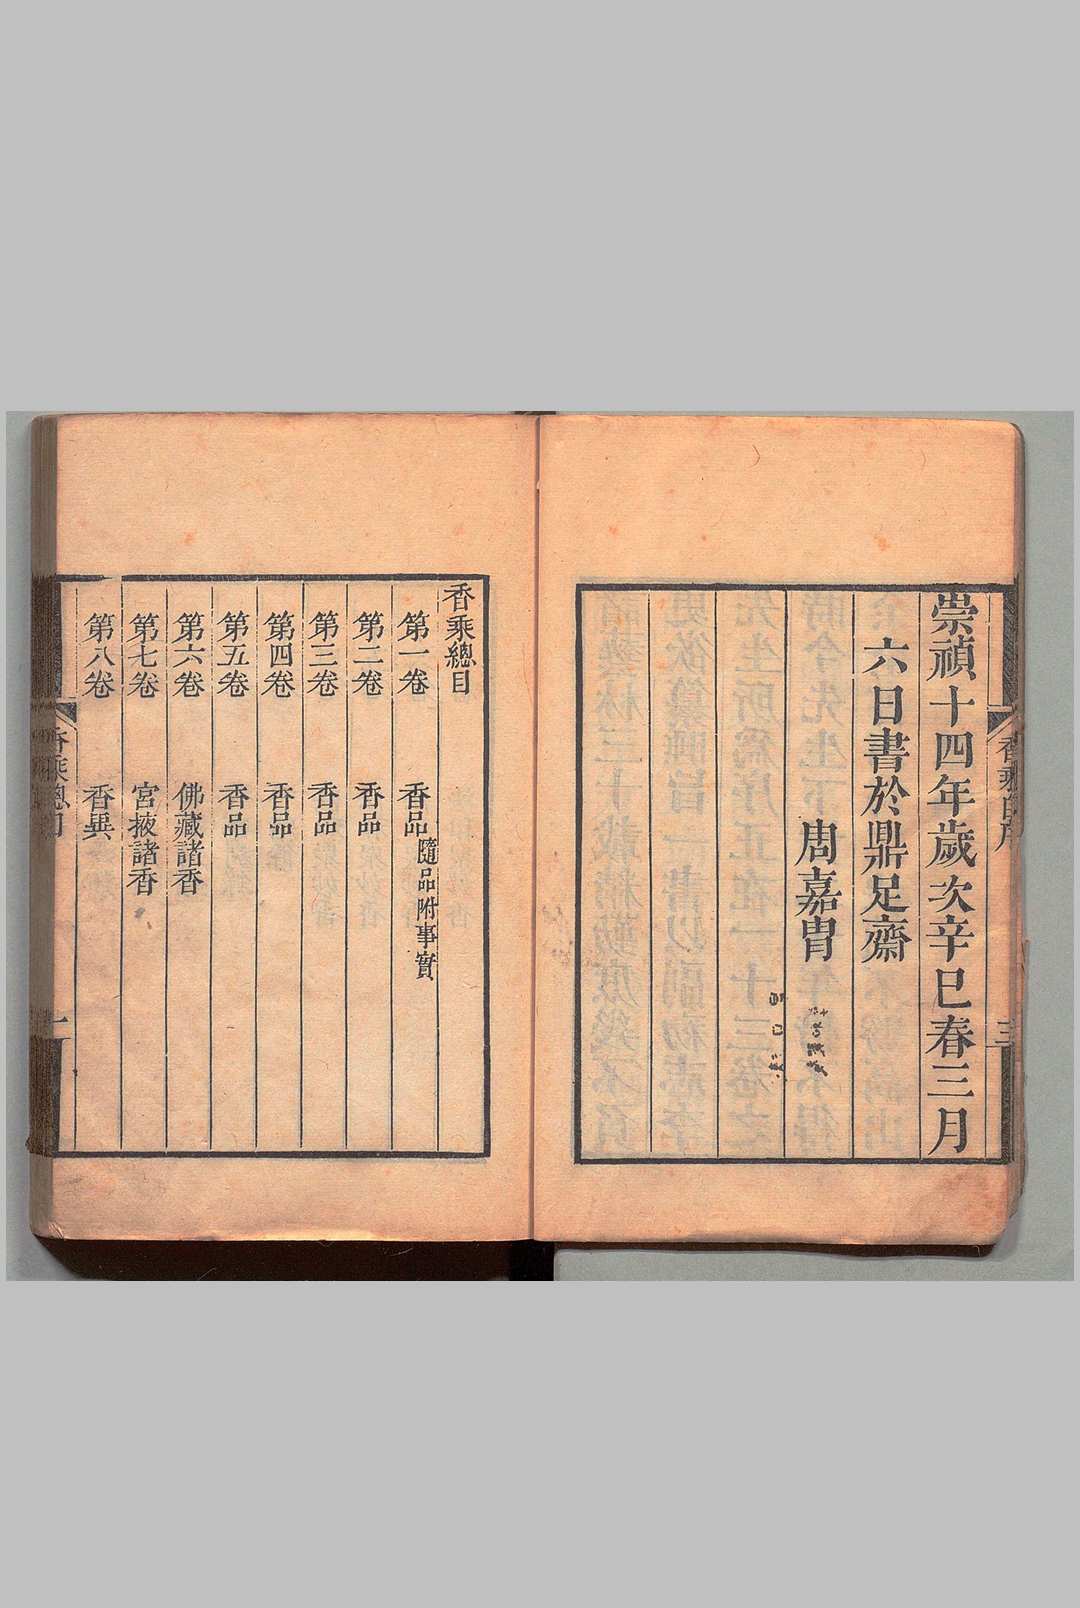 崇禎十四年歲次辛巳春三月
六日書於鼎足齋
周嘉冑
香乘總目
第一卷 香品 隨品附事實
第二卷 香品
第三卷 香品
第四卷 香品
第五卷 香品
第六卷 佛藏諸香
第七卷 宮掖諸香
第八卷 香異
香乘總目 一